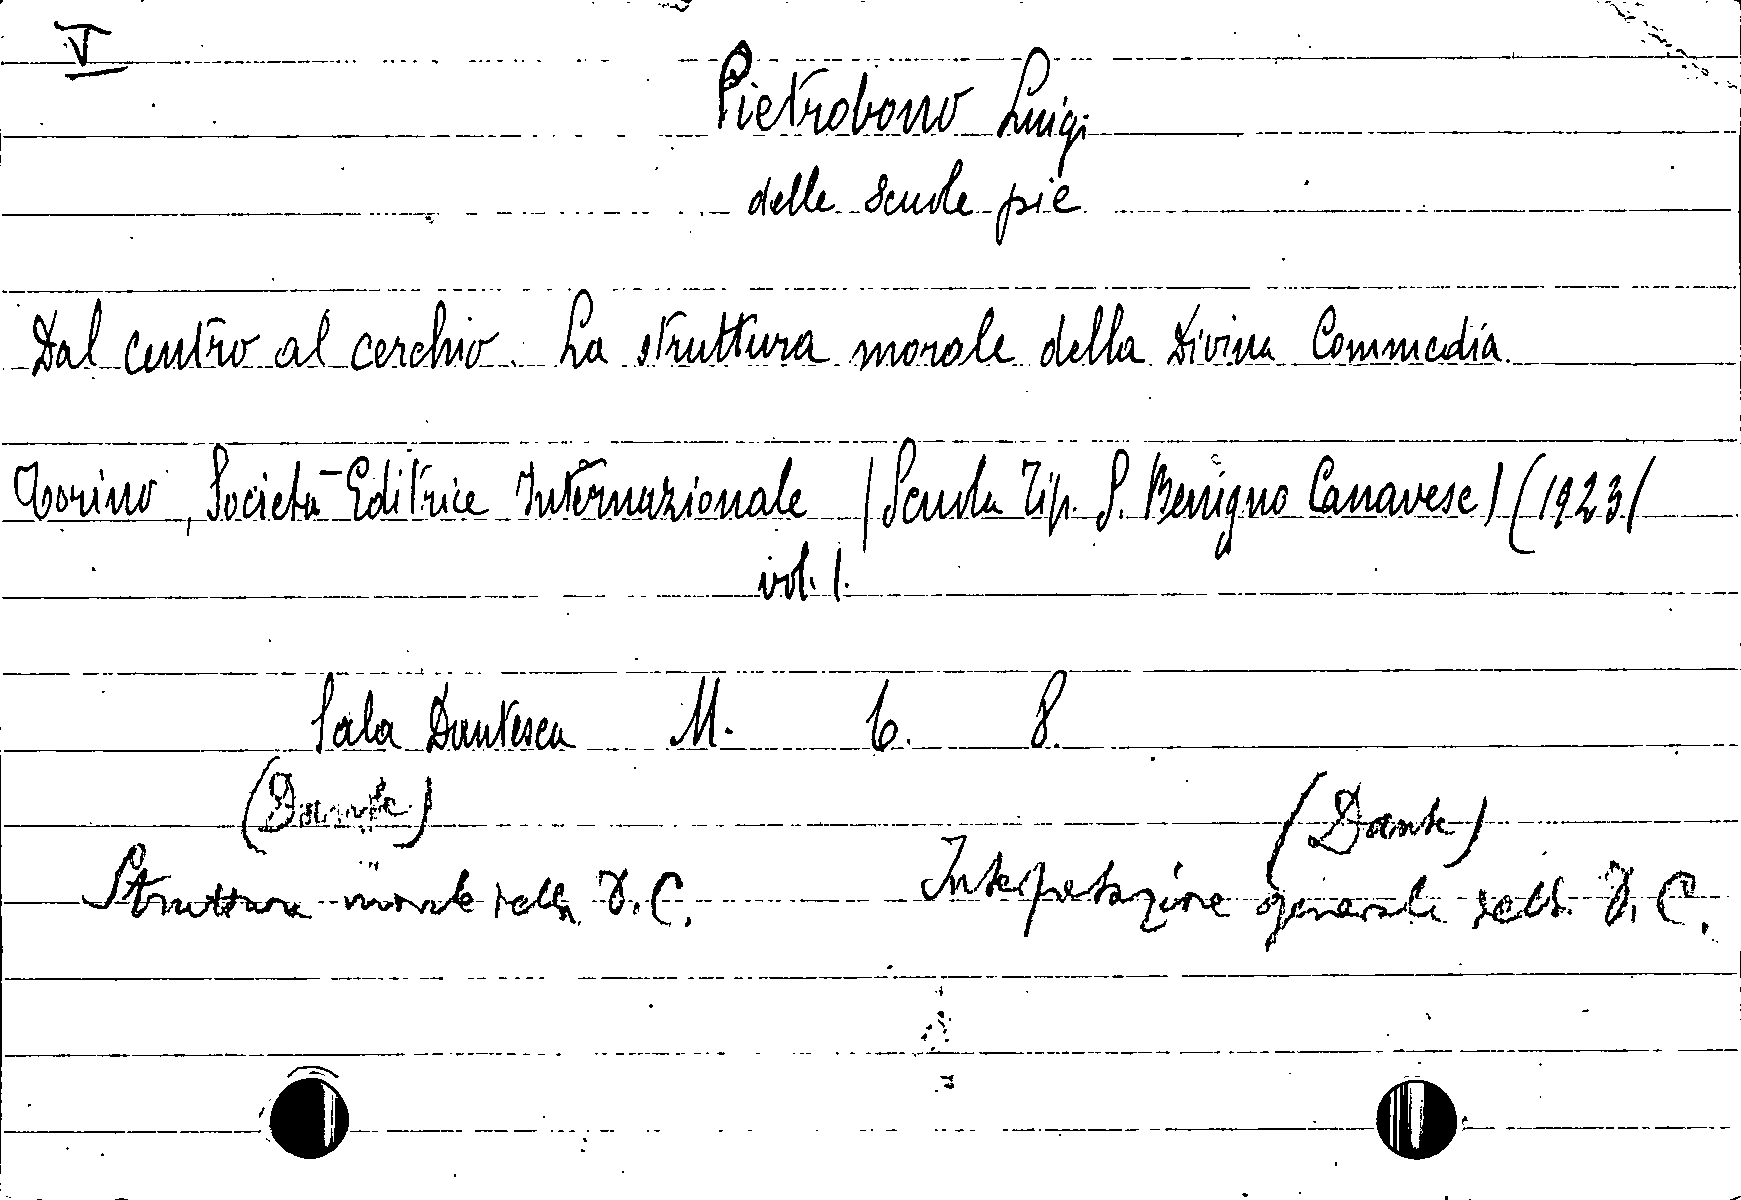 V
Pietrobono Luigi
delle scuole pie
Dal centro al cerchio. La struttura morale della Divina Commedia.
Torino, Società Editrice Internazionale (Scuola Tip. S. Benigno Canavese) (1923)
vol. 1.
Sala Dantesca M. 6. 8.
(Dante) (Dante)
Struttura morale della D.C. Interpretazione generale della D.C.